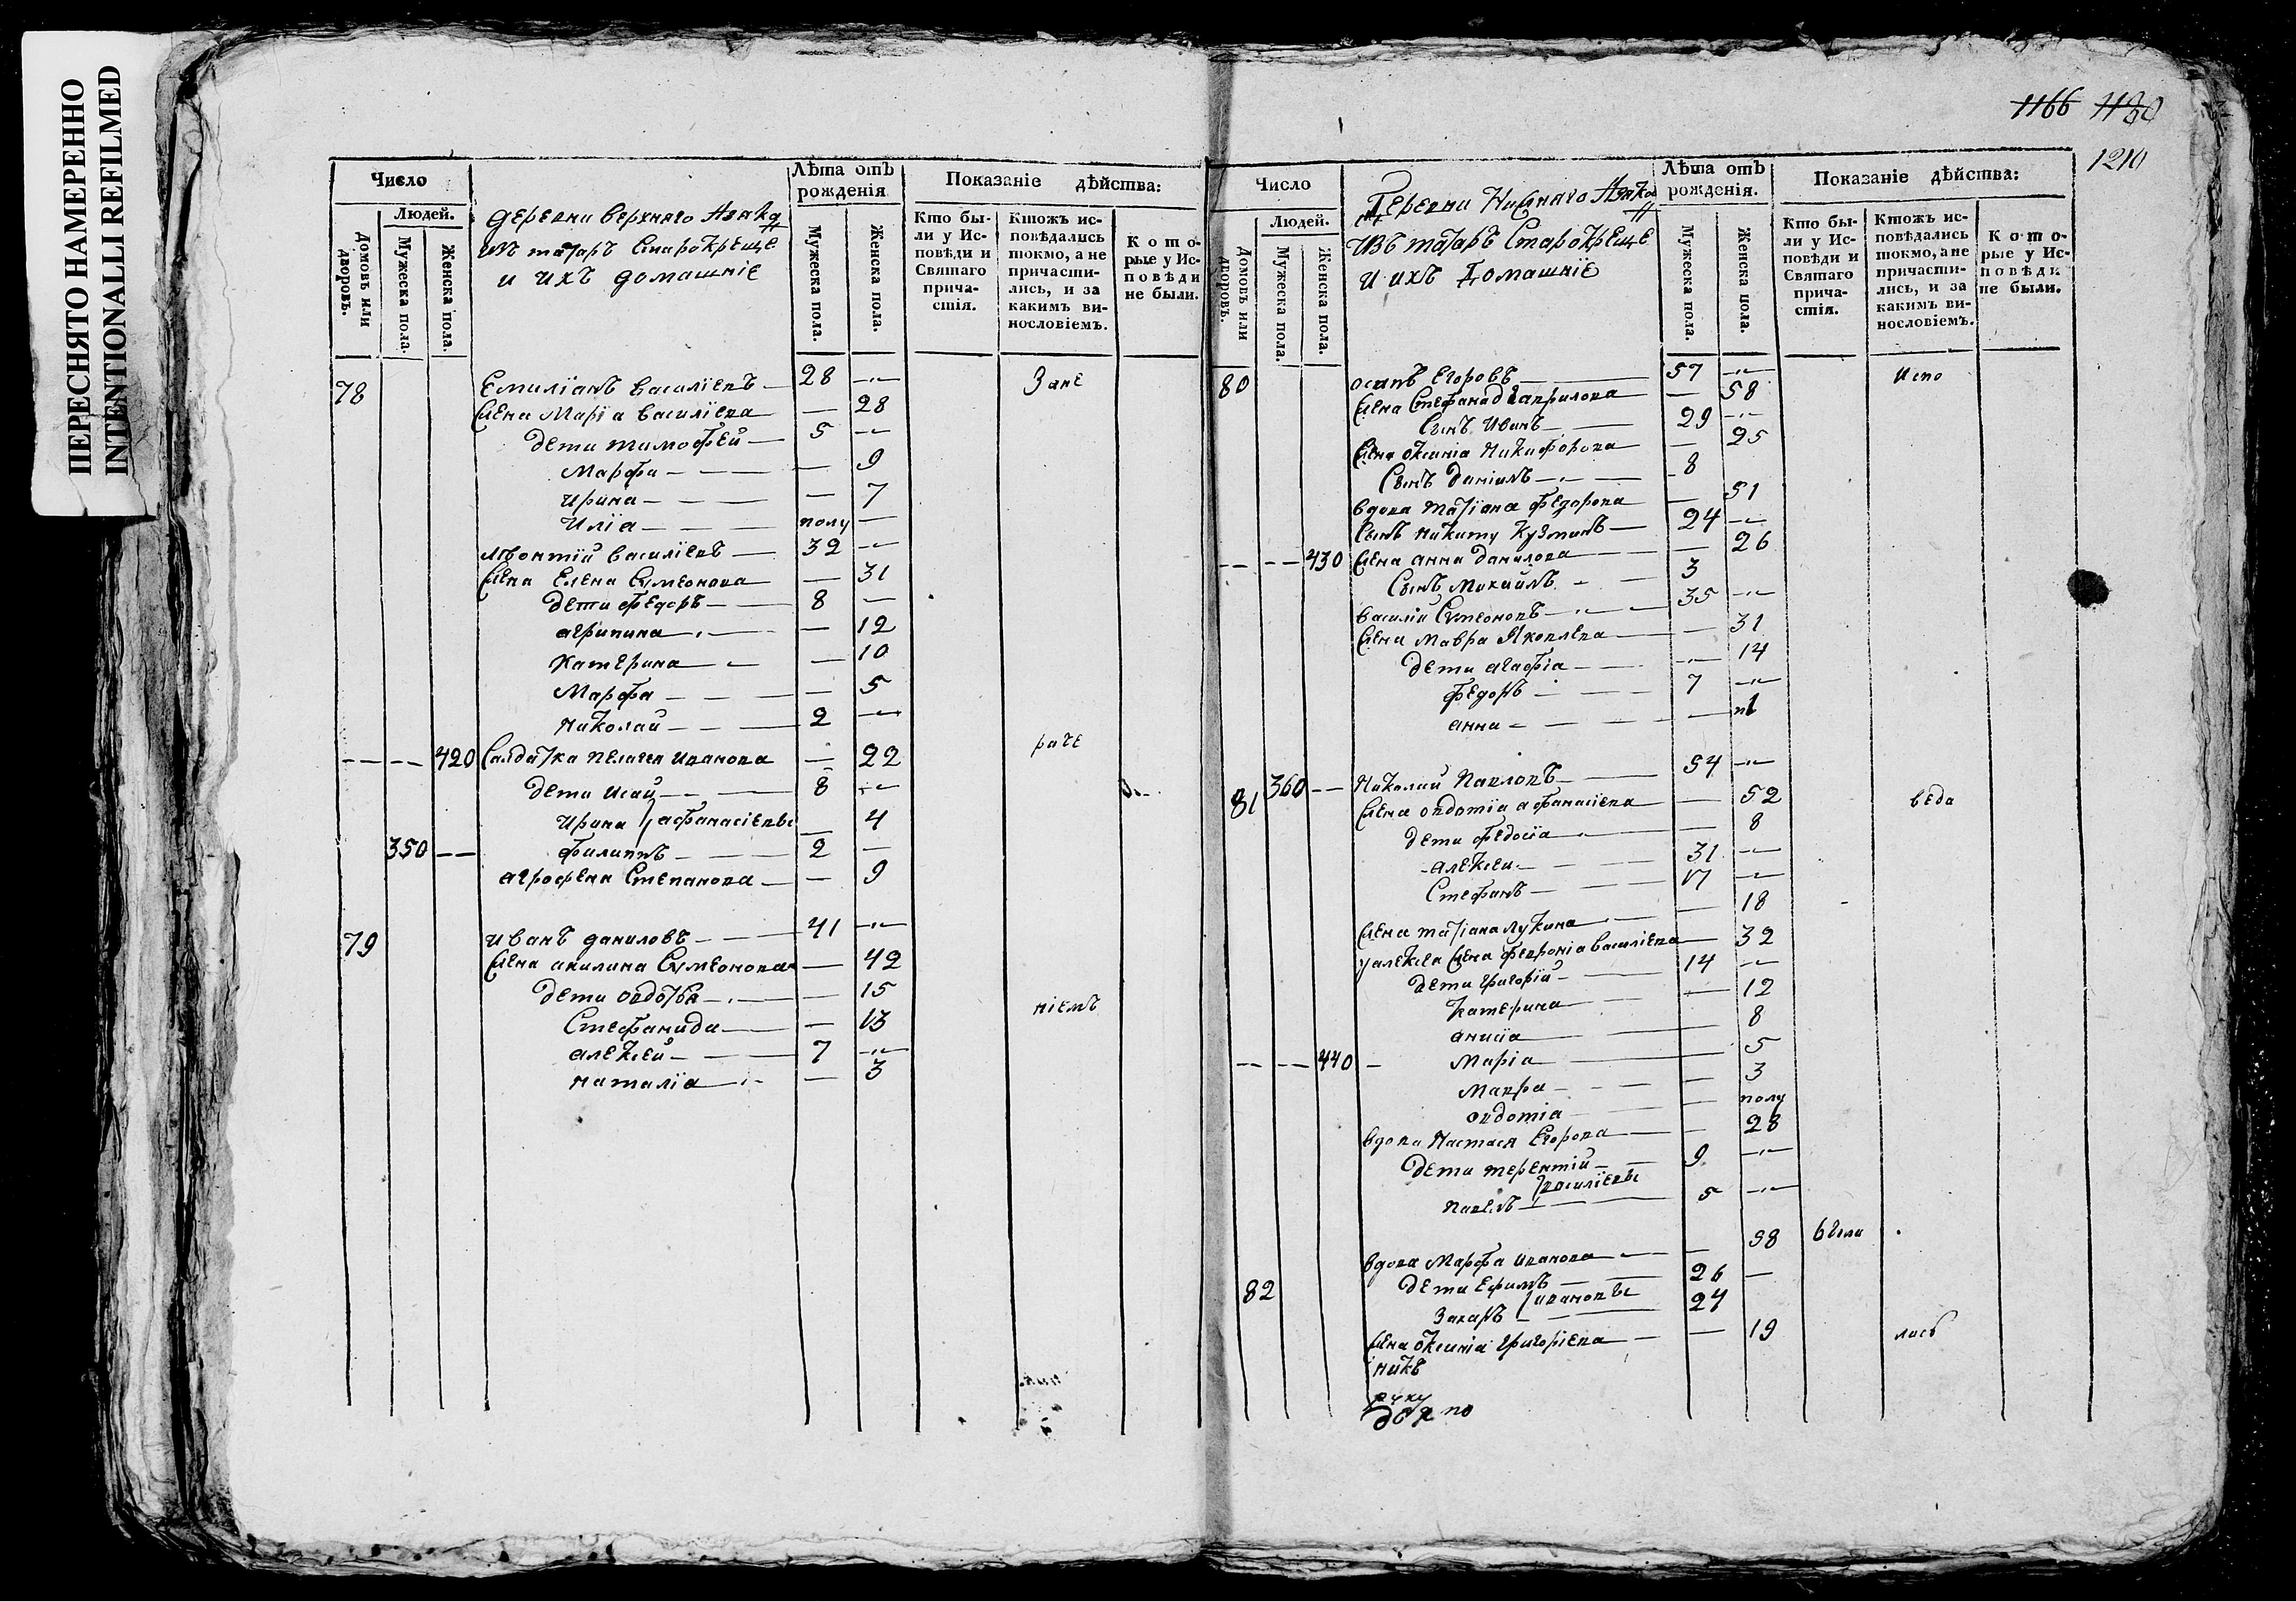 ПЕРЕСНЯТО НАМЕРЕННО
INTENTIONALLI REFILMED
1166 1180
1210
Число
Людей.
Домовъ или дворовъ.
Мужеска пола.
Женска пола.
деревни верхняго Азяка
изъ татаръ Старокреще
и ихъ домашніе
Лѣта отъ рожденія
Мужеска пола.
Женска пола.
Показаніе дѣйства:
Кто бы-
ли у Ис-
повѣди и
Святаго
прича-
стія.
Ктожъ ис-
повѣдались
токмо, а не
причасти-
лись, и за
какимъ ви-
нословіемъ.
Кото-
рые у Ис-
повѣди
не были.
78 Емиліанъ Василіевъ — 28 -"- Зане
Жена Маріа Василіева — 28
дети тимофей — 5 -"-
Марфа — — 9
ирина — — 7
иліа — полу —
леонтій Василіевъ — 32 -"-
Жена Елена Сѵмеонова — 31
дети федоръ — 8 —
агрипина — — 12
катерина — — 10
Марфа — — 5
николай — 2 -"-
420 Салдатка пелагея иванова — 22 раче
дети исай — 8 -"-
ирина афанасіевы — 4
350 филиппъ — 2 —
агрофена Степанова — — 9
79 иванъ даниловъ — 41 -"-
Жена акилина Сѵмеонова — 42
дети овдотья — — 15 ніемъ
Стефанида — — 13
алексей — 7 -"-
наталіа — — 3
Число
Людей.
Домовъ или дворовъ.
Мужеска пола.
Женска пола.
Деревни Нижняго Азяка
изъ татаръ Старокреще
и ихъ домашніе
Лѣта отъ рожденія.
Мужеска пола.
Женска пола.
Показаніе дѣйства:
Кто бы-
ли у Ис-
повѣди и
Святаго
прича-
стія.
Ктожъ ис-
повѣдались
токмо, а не
причасти-
лись, и за
какимъ ви-
нословіемъ.
Кото-
рые у Ис-
повѣди
не были.
80 осипъ Егоровъ — 57 -"- Испо
Жена Стефанида Гаврилова — 58
Сынъ иванъ — 29 -"-
Жена оксиніа Никифорова — 25
Сынъ даніилъ — 8
вдова татіана федорова — 51
Сынъ никита Кузминъ — 24 -"-
430 Жена анна данилова — 26
Сынъ михайлъ — 3
василій Сѵмеоновъ — 35 -"-
Жена мавра Яковлева — 31
дети агафіа — -"- 14
федоръ — 7 -"-
анна — —
81 360 Николай Павловъ — 54 -"-
Жена овдотіа афанасіева — 52 веда
дети федосіа — — 8
алексей — 31 -"-
Стефанъ — 17 -"-
Жена татіана лукина — 18
у алексея Жена феврониа василіева — 32
дети григорій — 14 -"-
катерина — — 12
анисіа — — 8
440 Маріа — — 5
Мавра — — 3
овдотіа — — полу
вдова Настася Егорова — 28
дети терентій — 9 -"-
василіевы
павелъ — 5 -"-
вдова Марфа иванова — 58
82 дети Ефимъ — 26 —
ивановы
Захаръ — 24
Жена оксиніа григоріева — 19 лись